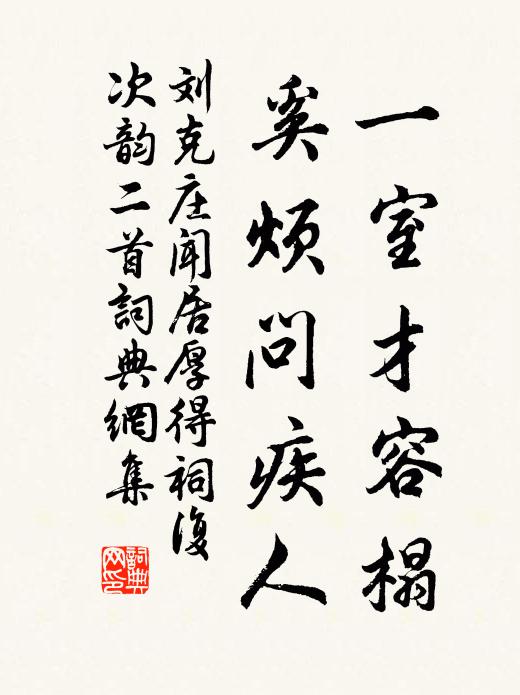 一室才容榻
奚烦问疾人
刘克庄闻居厚得祠复
次韵二首詞典網集
詞典网印